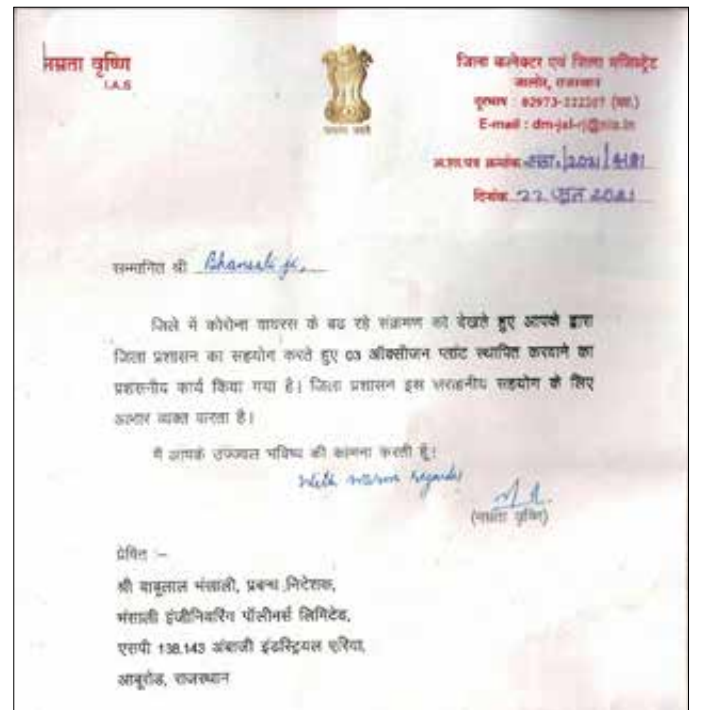 नम्रता वृष्णि
I.A.S
सत्यमेव जयते
जिला कलेक्टर एवं जिला मजिस्ट्रेट
जालोर, राजस्थान
दूरभाष : 02973-222207 (का.)
E-mail : dm-jal-rj@nic.in
अ.शा.पत्र क्रमांक /2021/
दिनांक 22 जून 2021
सम्मानित श्री Bhansali ji,
जिले में कोरोना वायरस के बढ रहे संक्रमण को देखते हुए आपके द्वारा
जिला प्रशासन का सहयोग करते हुए 03 ऑक्सीजन प्लांट स्थापित करवाने का
प्रशंसनीय कार्य किया गया है। जिला प्रशासन इस सराहनीय सहयोग के लिए
आभार व्यक्त करता है।
मैं आपके उज्ज्वल भविष्य की कामना करती हूँ।
With warm regards
(नम्रता वृष्णि)
प्रेषित :–
श्री बाबूलाल भंसाली, प्रबन्ध निदेशक,
भंसाली इंजीनियरिंग पॉलीमर्स लिमिटेड,
एसपी 138.143 अंबाजी इंडस्ट्रियल एरिया,
आबूरोड, राजस्थान